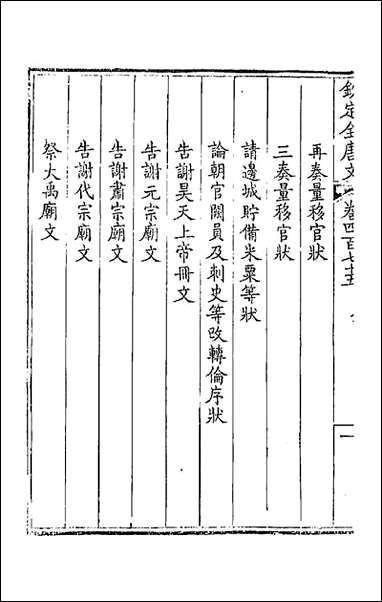 欽定全唐文
卷四百七十五
一
再奏量移官狀
三奏量移官狀
請邊城貯備米粟等狀
論朝官闕員及刺史等改轉倫序狀
告謝昊天上帝冊文
告謝元宗廟文
告謝肅宗廟文
告謝代宗廟文
祭大禹廟文